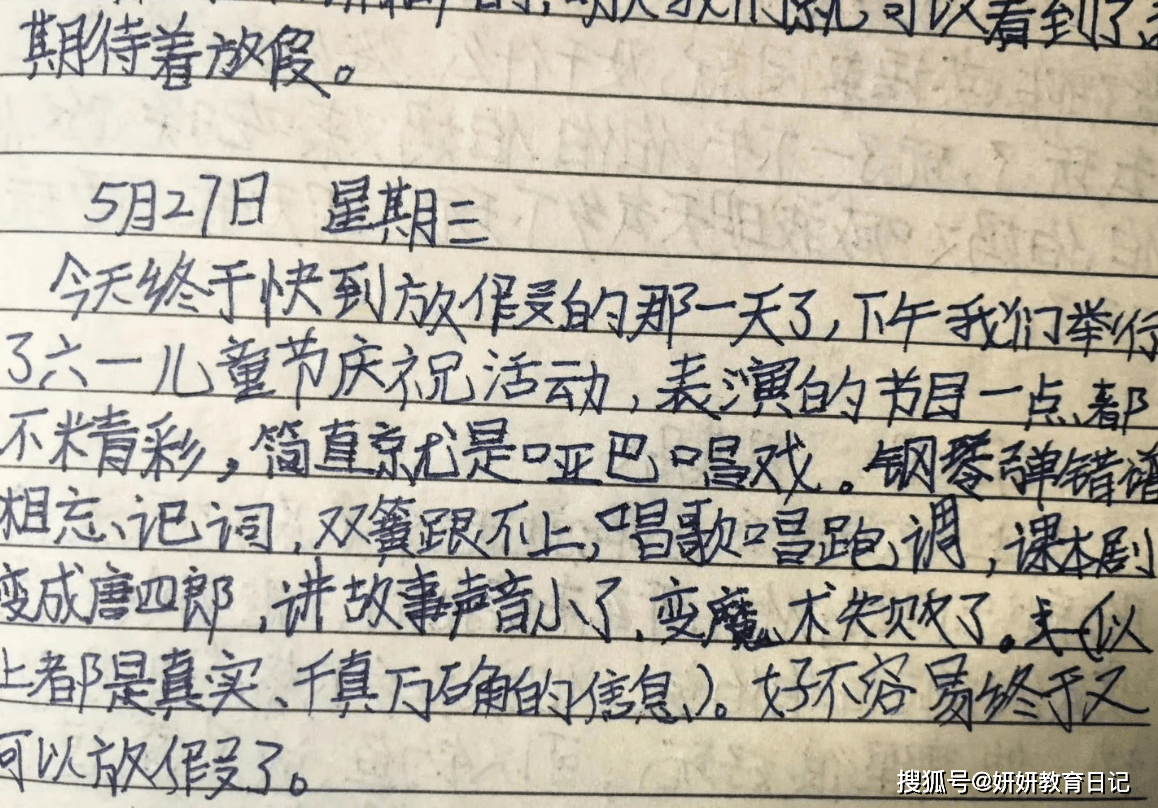 我们就可以看到了
期待着放假。
5月27日 星期三
今天终于快到放假的那一天了,下午我们举行
了六一儿童节庆祝活动,表演的节目一点都
不精彩,简直就是哑巴唱戏。钢琴弹错谱
相忘记词,双簧跟不上,唱歌唱跑调,课本剧
变成唐四郎,讲故事声音小了,变魔术失败了。(以
上都是真实、千真万确的信息)。好不容易终于又
可以放假了。
搜狐号@妍妍教育日记